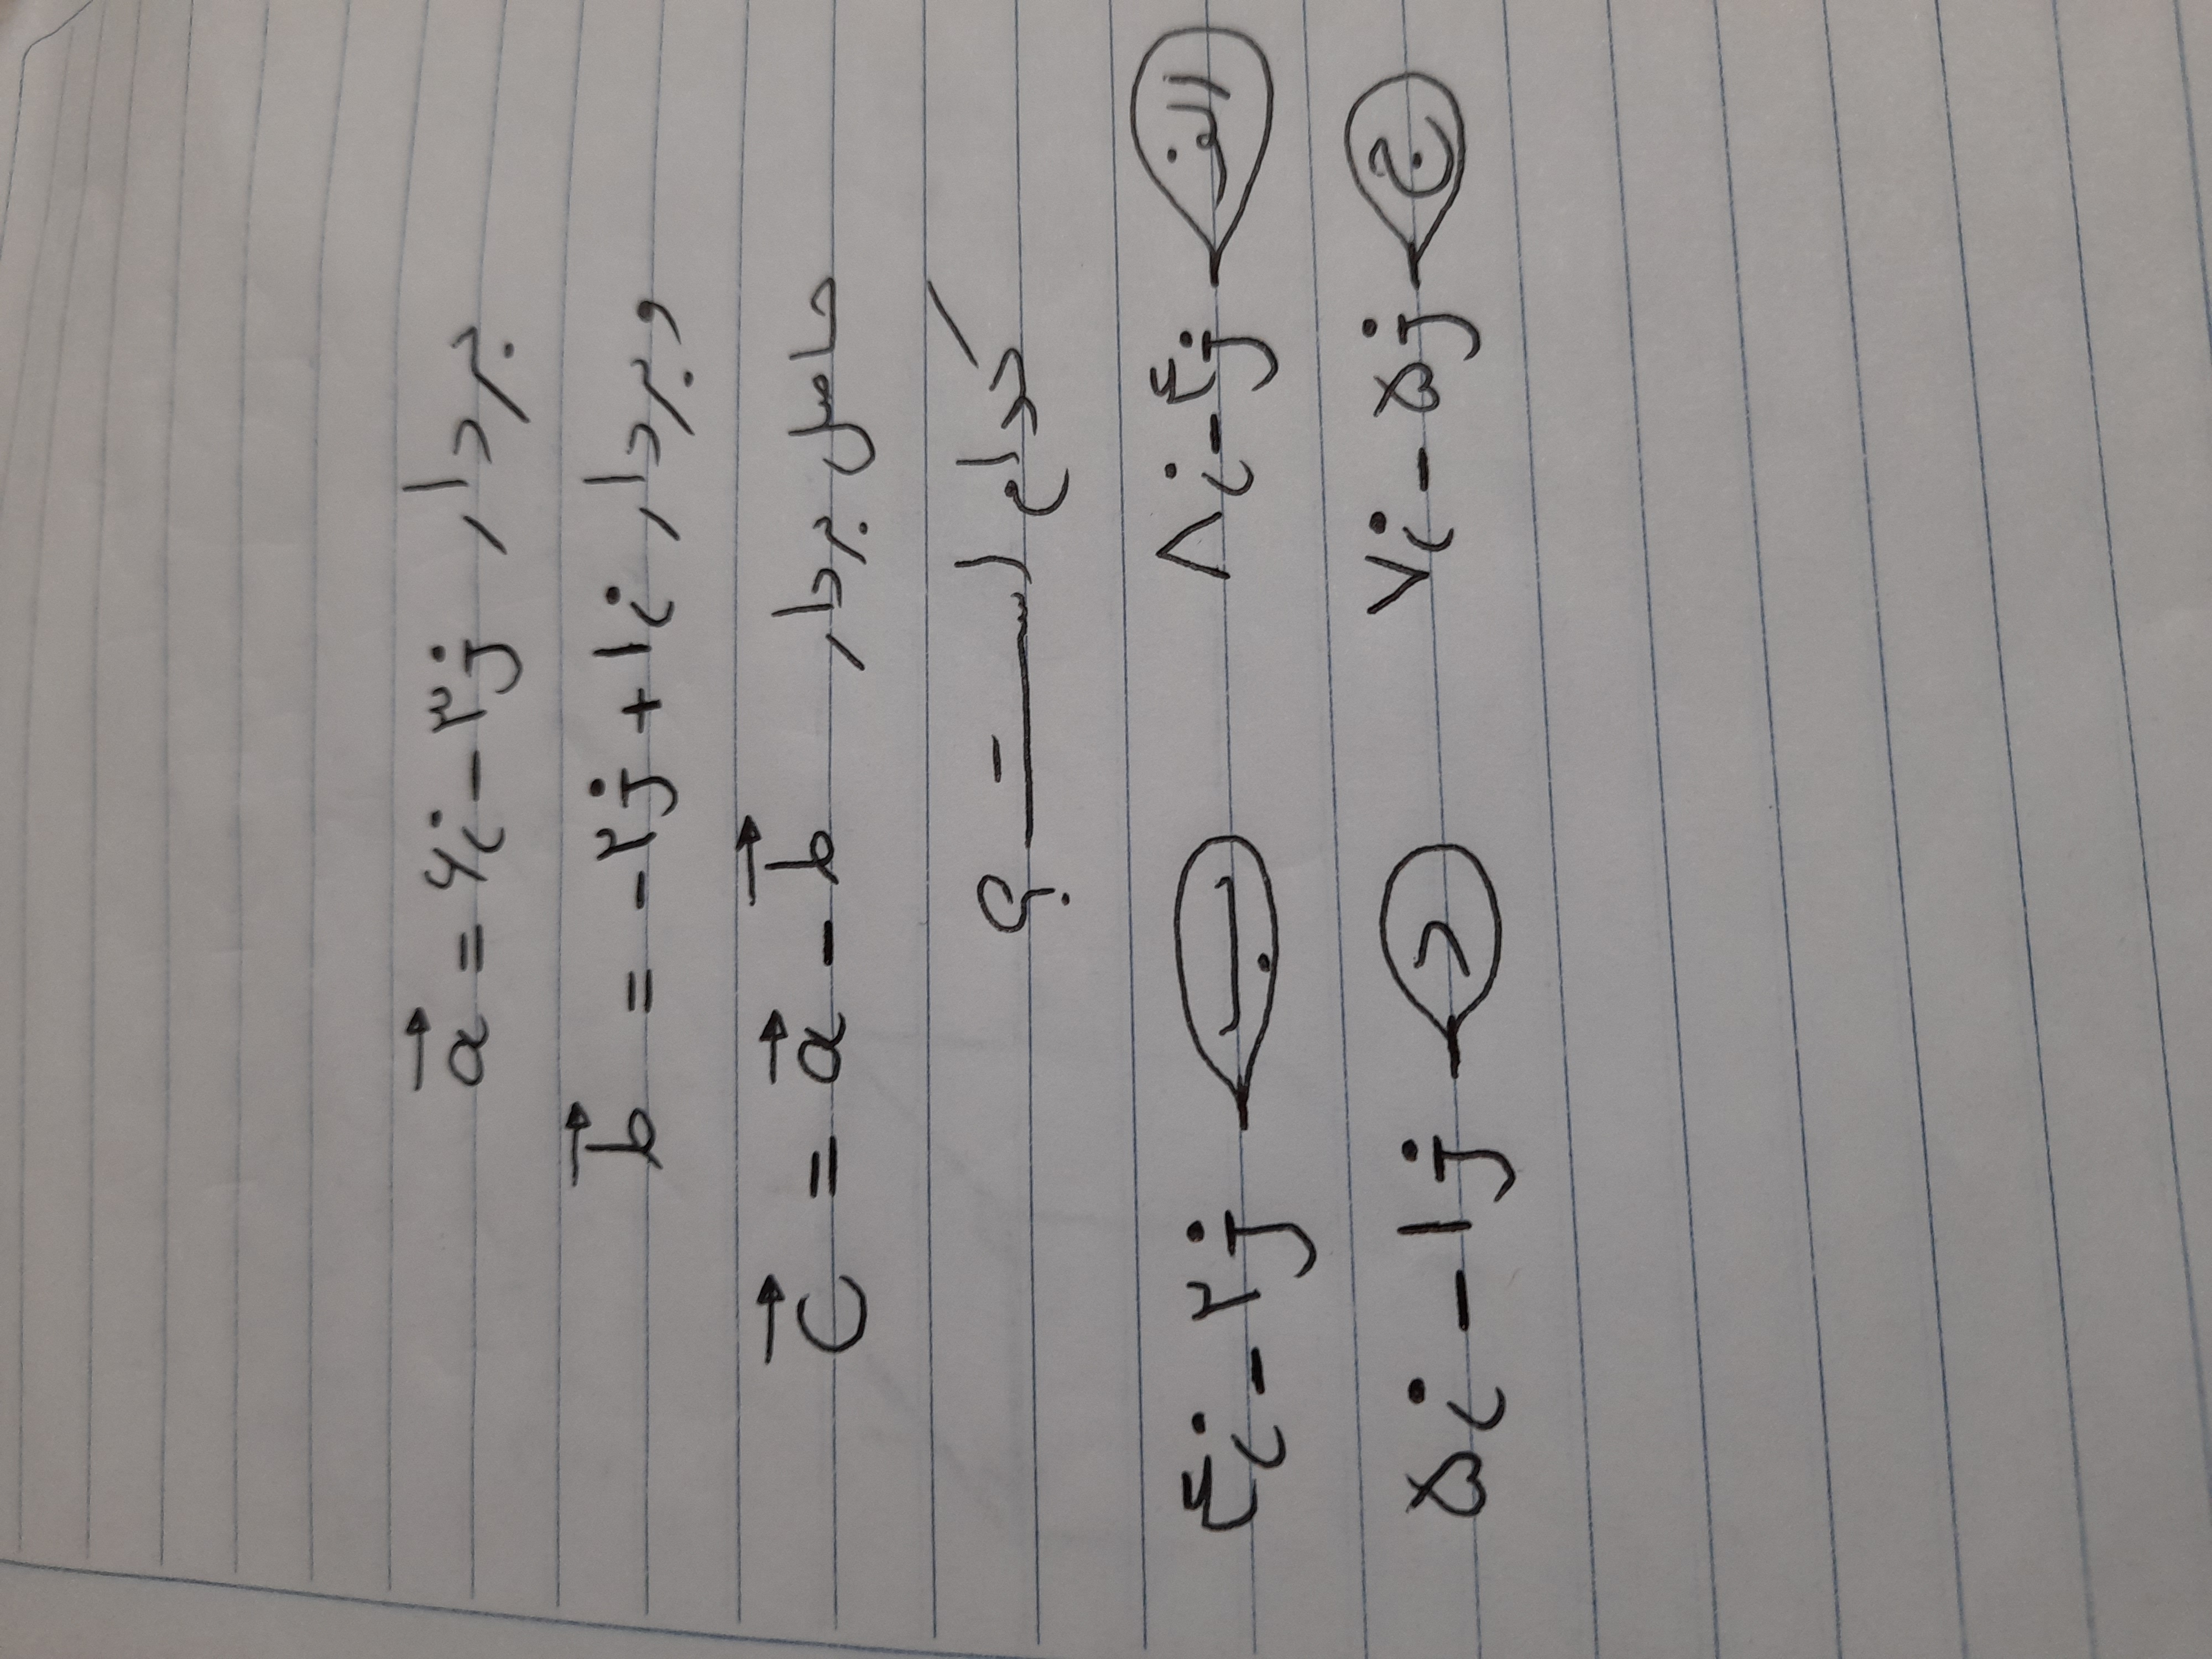 بردار a⃗ = ۶i - ۳j
و بردار b⃗ = -۲j + ۱i
حاصل بردار c⃗ = a⃗ - b⃗
کدام است؟
الف ۸i - ۴j ب ۴i - ۲j
ج ۷i - ۵j د ۵i - ۱j